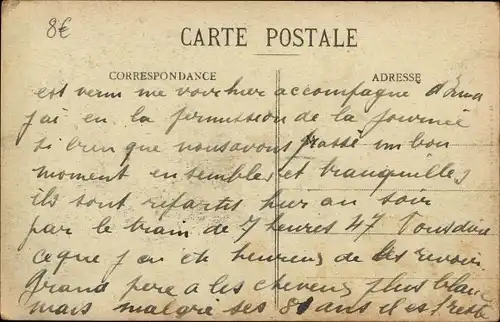 8€
CARTE POSTALE
CORRESPONDANCE
ADRESSE
est venu me voir hier accompagné d'Ema
j'ai eu la permission de la journée
si bien que nous avons passé un bon
moment ensembles et tranquilles
ils sont repartis hier au soir
par le train de 7 heures 47 Vous dire
ce que j'ai été heureux de les revoir
Grand père a les cheveux plus blanc
mais malgré ses 81 ans il est resté